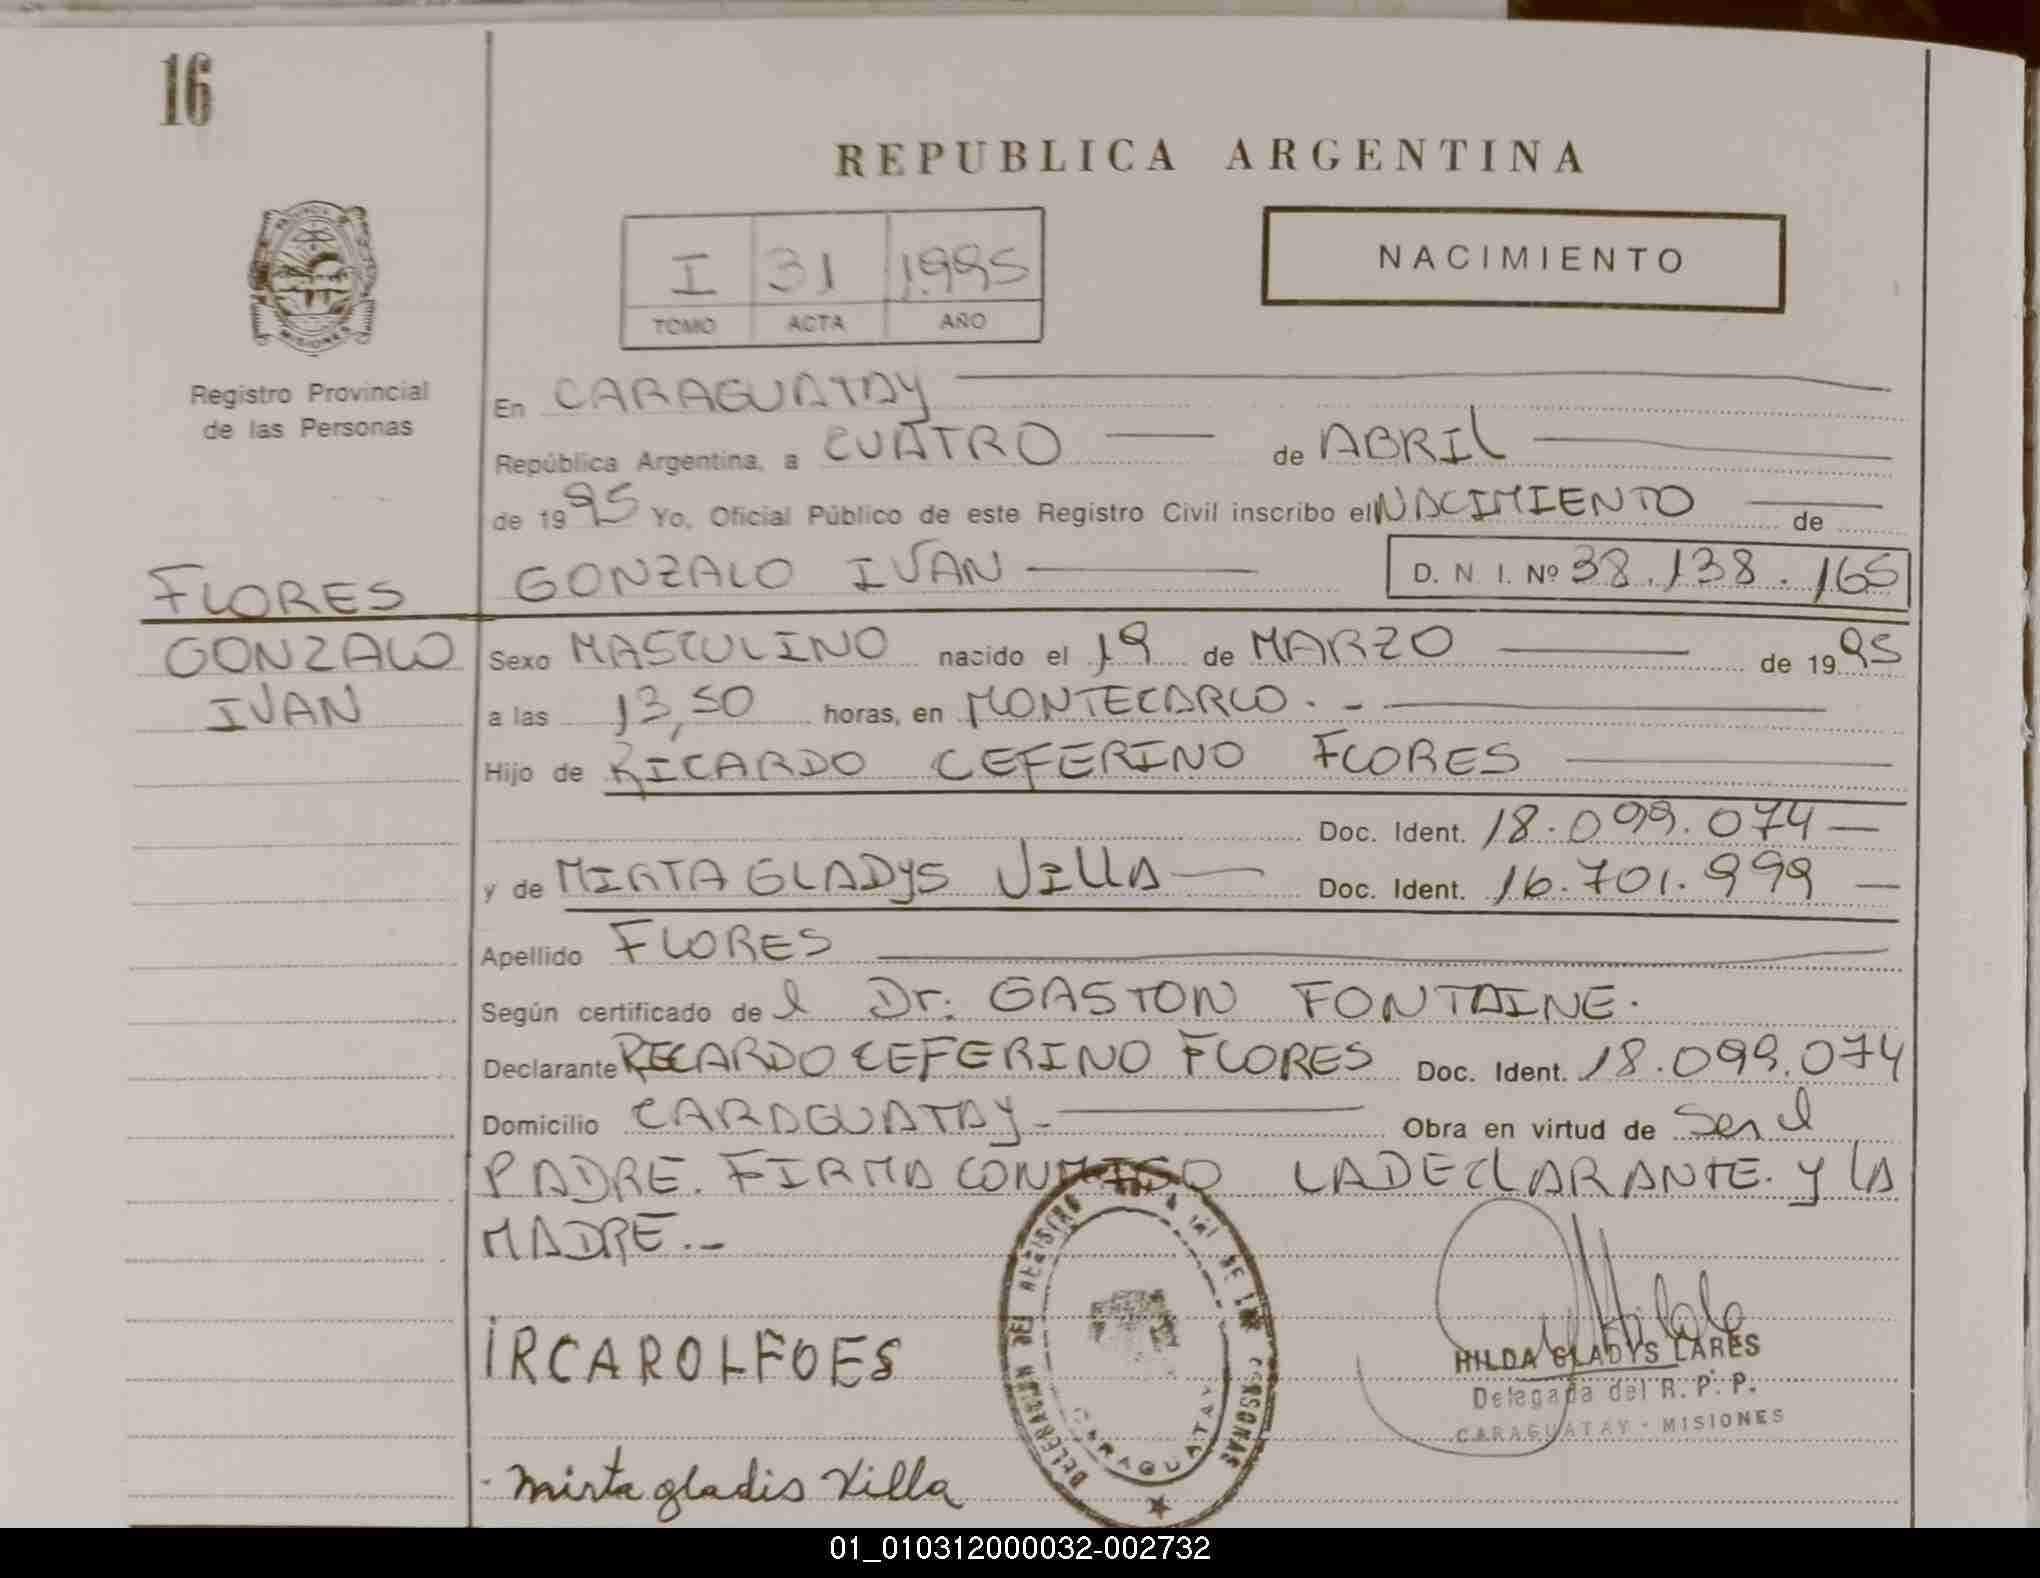 16
REPUBLICA ARGENTINA
PROVINCIA DE
MISIONES
I 31 1.995
TOMO ACTA AÑO
NACIMIENTO
Registro Provincial
de las Personas
En CARAGUATAY
República Argentina, a CUATRO de ABRIL
de 1995 Yo, Oficial Público de este Registro Civil inscribo el NACIMIENTO de
GONZALO IVAN D. N. I. Nº 38.138.165
FLORES
GONZALO
IVAN
Sexo MASCULINO nacido el 19 de MARZO de 1995
a las 13,50 horas, en MONTECARLO. -
Hijo de RICARDO CEFERINO FLORES
Doc. Ident. 18.099.074
y de MIRTA GLADYS VILLA Doc. Ident. 16.701.999
Apellido FLORES
Según certificado de l Dr. GASTON FONTAINE.
Declarante RICARDO CEFERINO FLORES Doc. Ident. 18.099.074
Domicilio CARAGUATAY- Obra en virtud de Ser el
PADRE. FIRMA CONMIGO LA DECLARANTE. Y LA
MADRE.-
IRCAROLFOES
mirta gladis Villa
HILDA GLADYS LARES
Delegada del R. P. P.
CARAGUATAY - MISIONES
CARAGUATAY
01_010312000032-002732